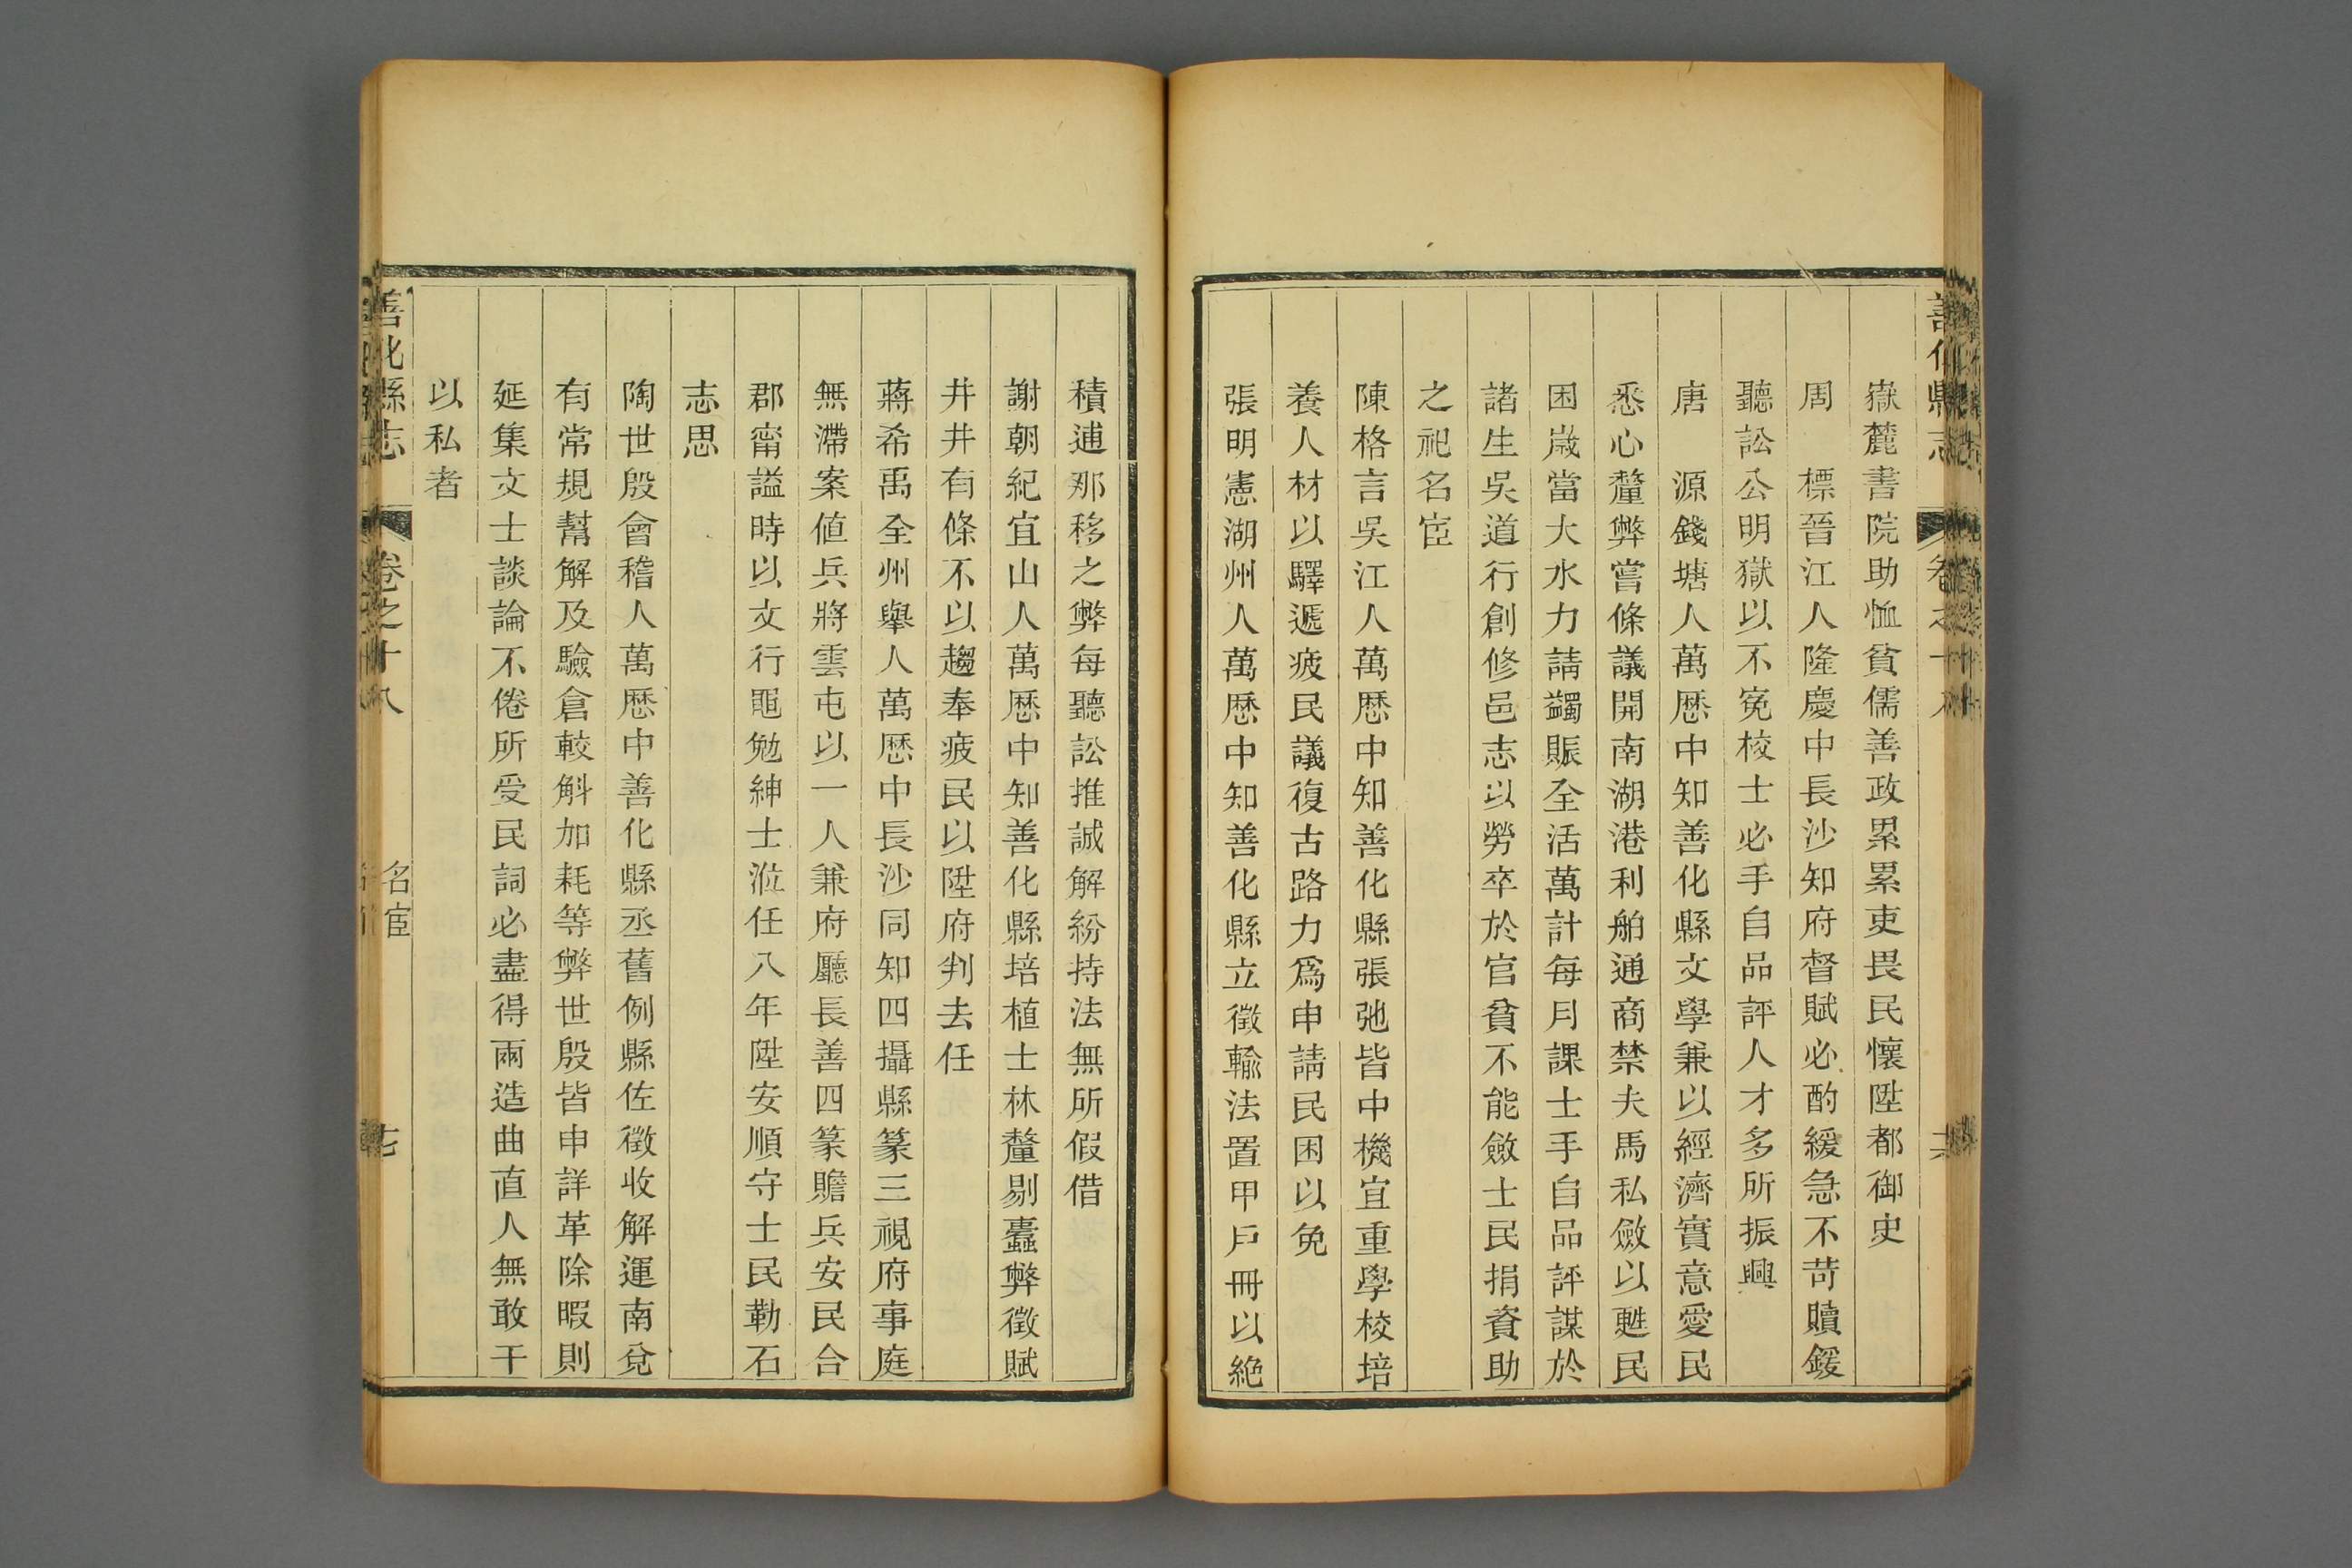 嶽麓書院助恤貧儒善政累累吏畏民懷陞都御史
周　標晉江人隆慶中長沙知府督賦必酌緩急不苛贖鍰
聽訟公明獄以不寃校士必手自品評人才多所振興
唐　源錢塘人萬歷中知善化縣文學兼以經濟實意愛民
悉心釐弊嘗條議開南湖港利舶通商禁夫馬私斂以甦民
困歲當大水力請蠲賑全活萬計每月課士手自品評謀於
諸生吳道行創修邑志以勞卒於官貧不能斂士民捐資助
之祀名宦
陳格言吳江人萬歷中知善化縣張弛皆中機宜重學校培
養人材以驛遞疲民議復古路力爲申請民困以免
張明憲湖州人萬歷中知善化縣立徵輸法置甲戶冊以絶
積逋那移之弊每聽訟推誠解紛持法無所假借
謝朝紀宜山人萬歷中知善化縣培植士林釐剔蠹弊徵賦
井井有條不以趨奉疲民以陞府判去任
蔣希禹全州舉人萬歷中長沙同知四攝縣篆三視府事庭
無滯案値兵將雲屯以一人兼府廳長善四篆贍兵安民合
郡甯謐時以文行黽勉紳士涖任八年陞安順守士民勒石
志思
陶世殷會稽人萬歷中善化縣丞舊例縣佐徵收解運南兌
有常規幫解及驗倉較斛加耗等弊世殷皆申詳革除暇則
延集文士談論不倦所受民詞必盡得兩造曲直人無敢干
以私者
善化縣志　卷之十八　名宦　十七